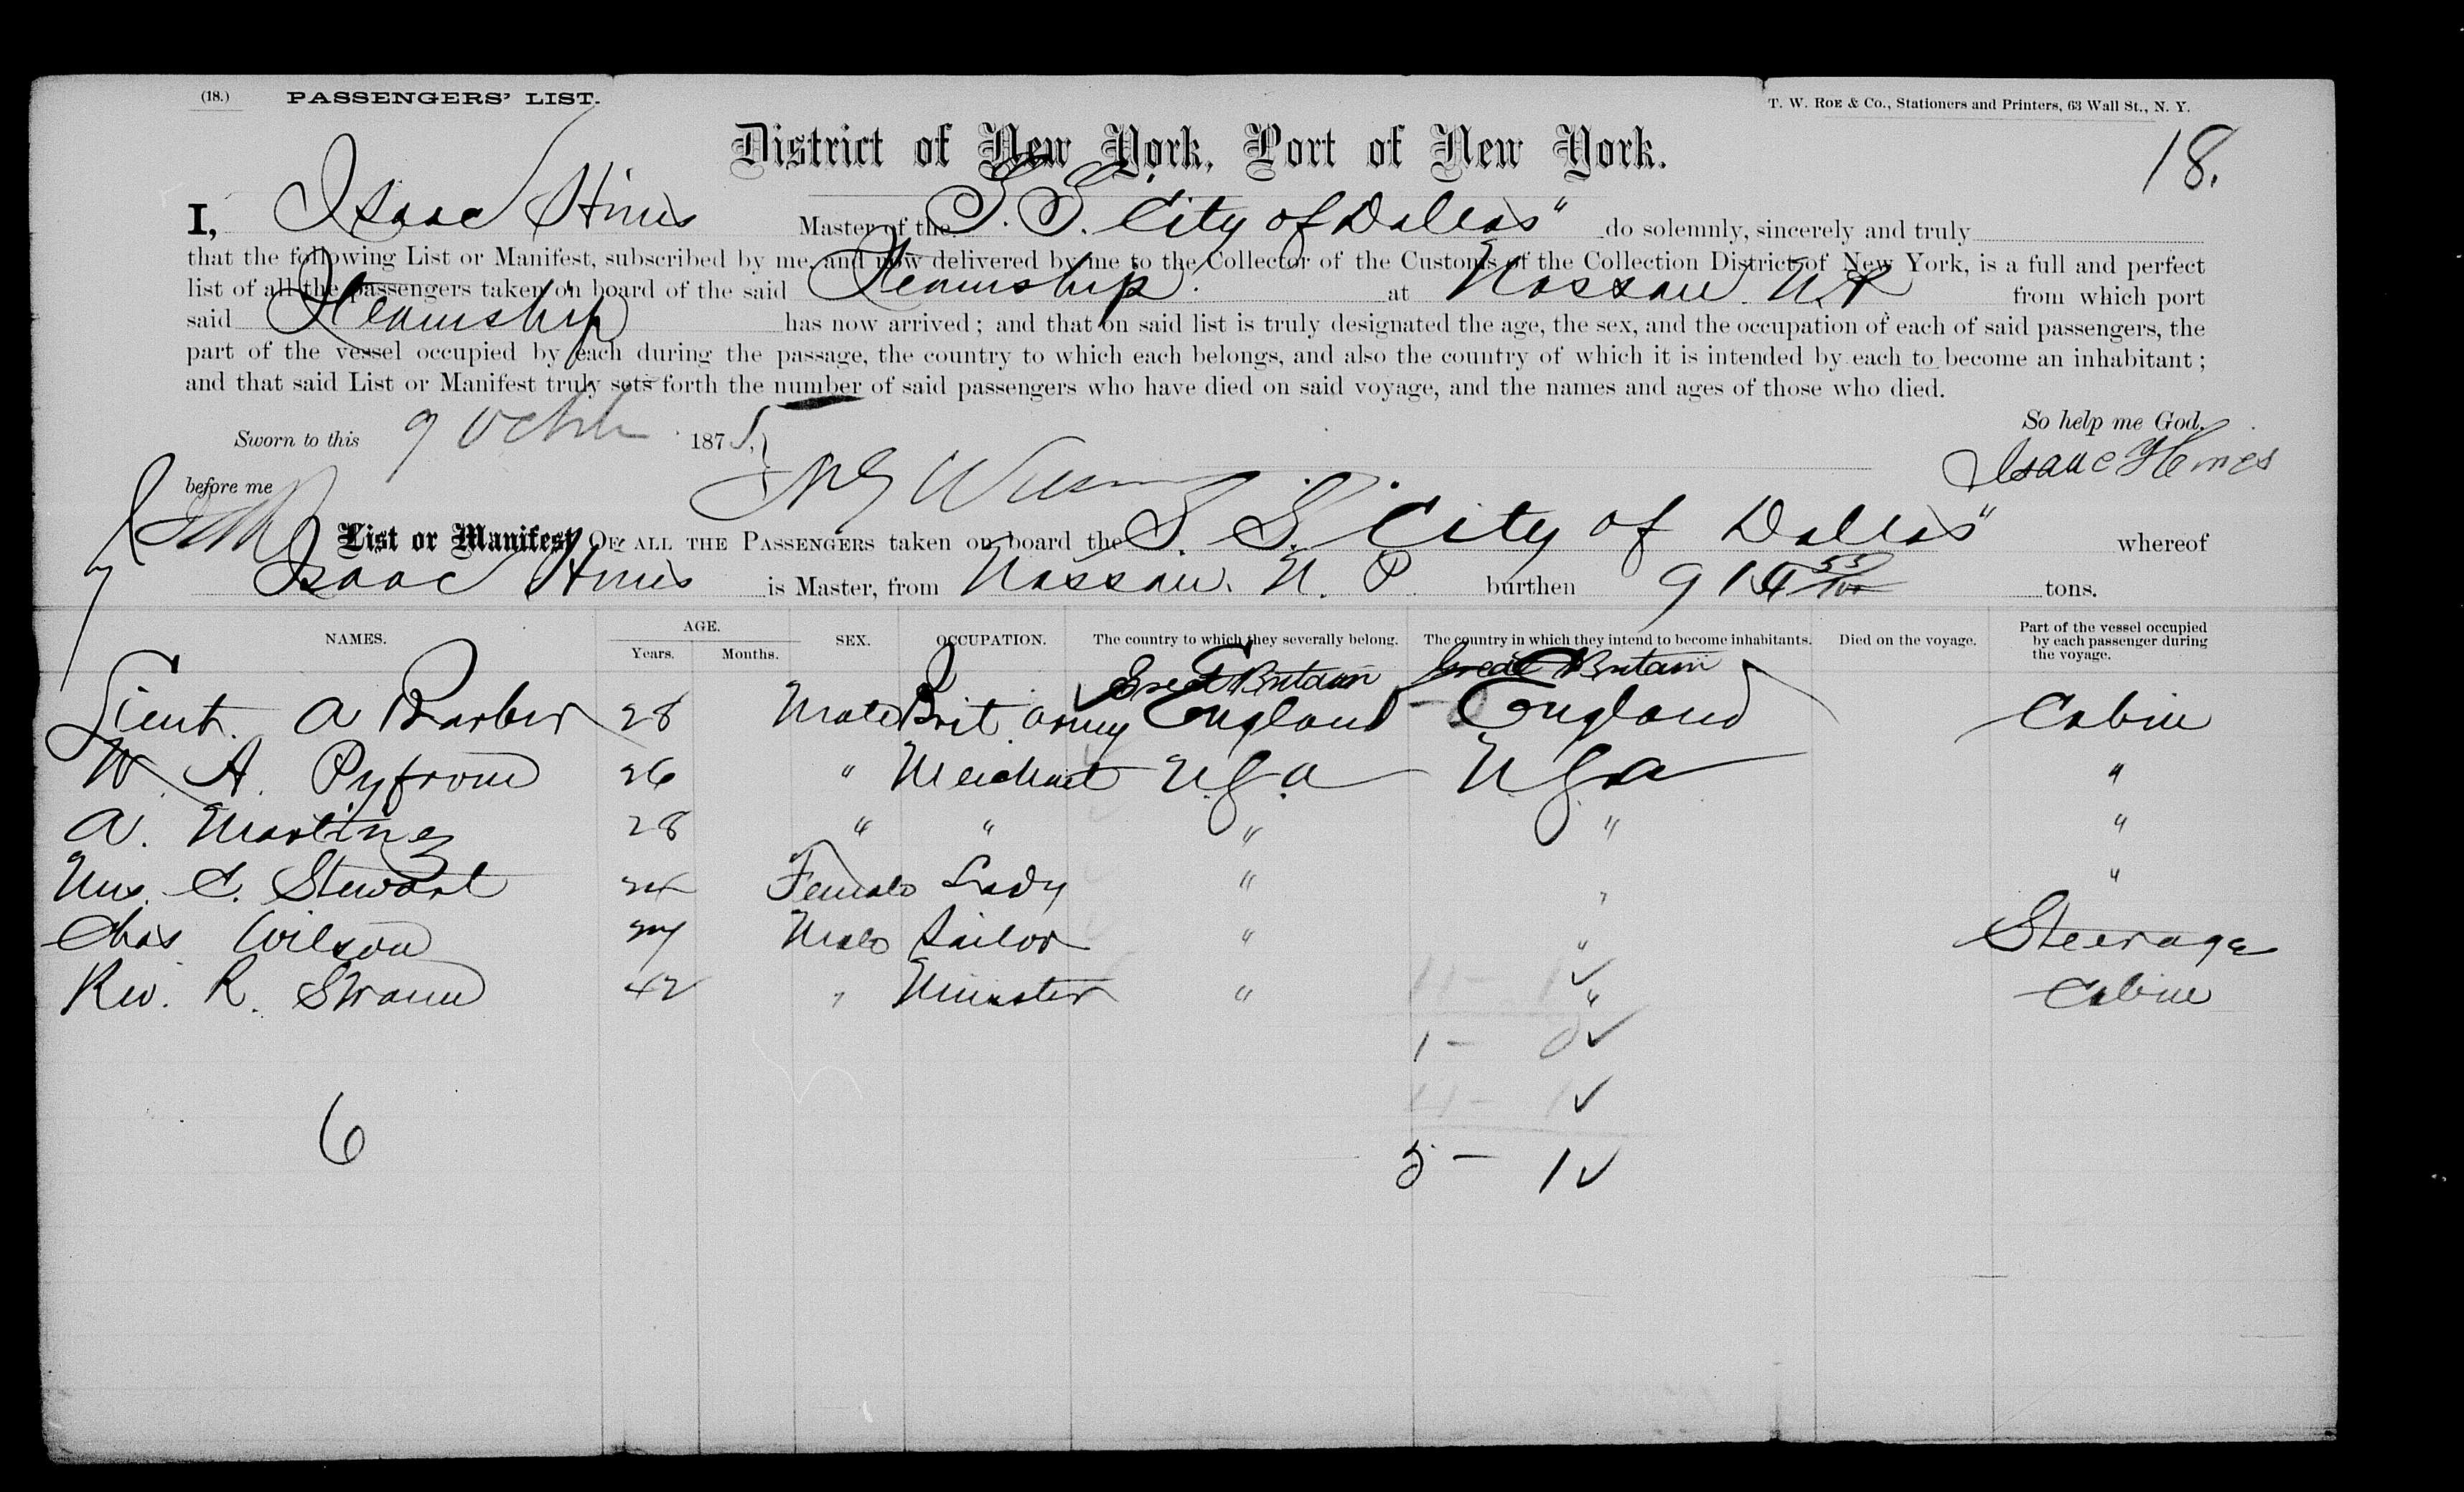 (18.) PASSENGERS' LIST. T. W. Roe & Co., Stationers and Printers, 63 Wall St., N. Y.
District of New York, Port of New York.
18.
I, Isaac Hines Master of the S. S. "City of Dallas" do solemnly, sincerely and truly
that the following List or Manifest, subscribed by me, and now delivered by me to the Collector of the Customs of the Collection District of New York, is a full and perfect
list of all the passengers taken on board of the said Steamship at Nassau N.P. from which port
said Steamship has now arrived; and that on said list is truly designated the age, the sex, and the occupation of each of said passengers, the
part of the vessel occupied by each during the passage, the country to which each belongs, and also the country of which it is intended by each to become an inhabitant;
and that said List or Manifest truly sets forth the number of said passengers who have died on said voyage, and the names and ages of those who died.
So help me God.
Sworn to this 9 Octbr 1875.
Isaac Hines
before me
List or Manifest OF ALL THE PASSENGERS taken on board the S. S. "City of Dallas" whereof
Isaac Hines is Master, from Nassau. N. P. burthen tons.
NAMES. AGE. Years. Months. SEX. OCCUPATION. The country to which they severally belong. The country in which they intend to become inhabitants. Died on the voyage. Part of the vessel occupied by each passenger during the voyage.
Great Britain Great Britain
Lieut. A Barber 28 Male Brit. Army England England Cabin
W. A. Pyfrom 26 " Merchant U.S.a U.S.a "
A. Martinez 28 " " " " "
Mrs. C. Stewart 24 Female Lady " " "
Chas Wilson 27 Male Sailor " " Steerage
Rev. R. Swann 42 " Minister " " Cabin
1 - 0 ✓
6
5 - 1 ✓